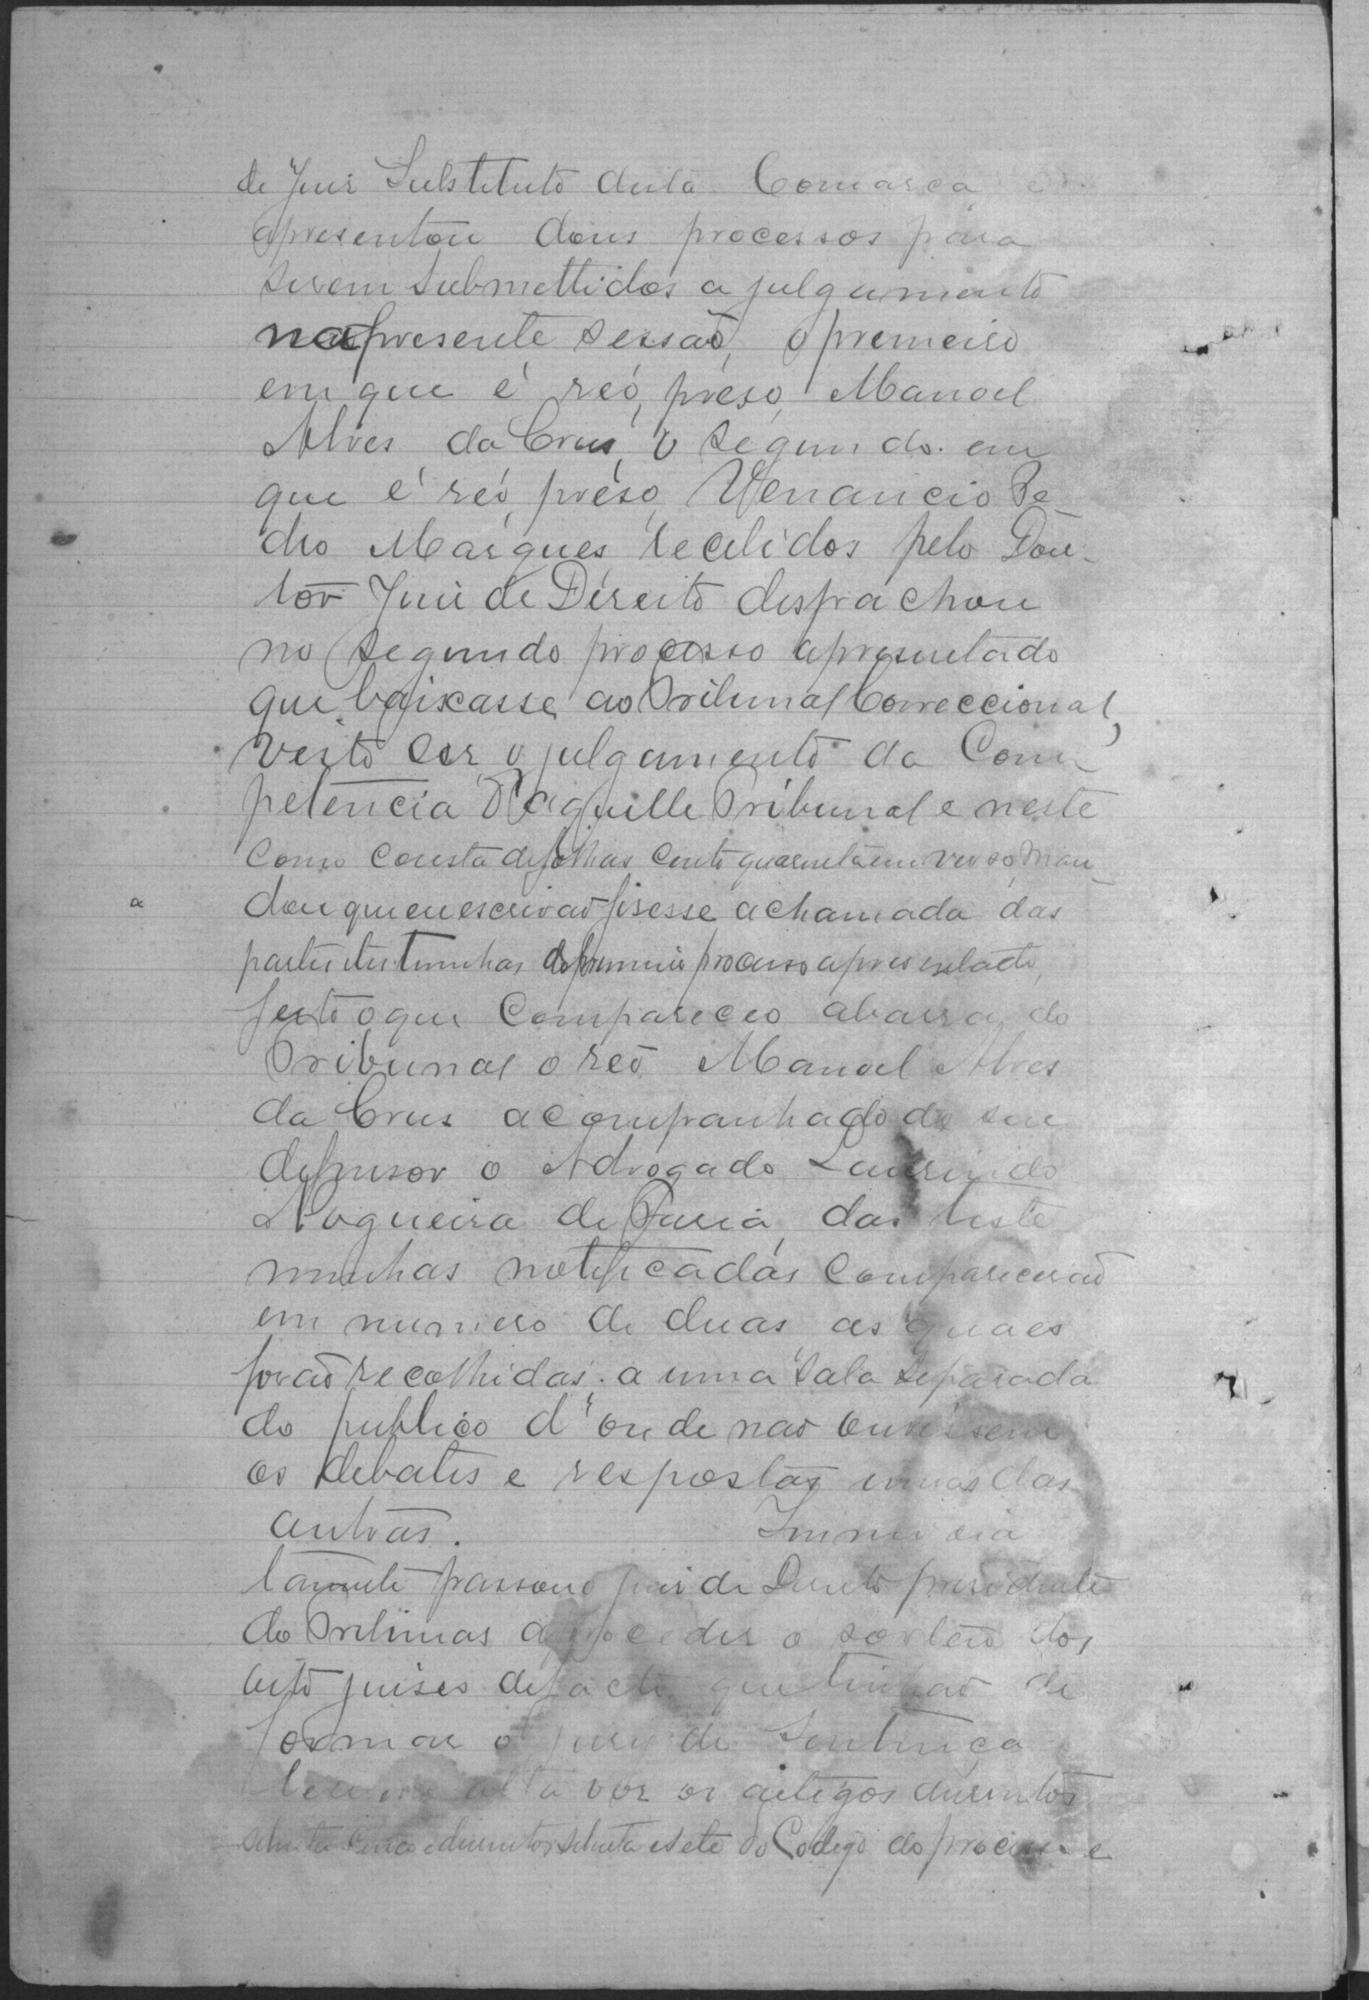 de Juiz Substituto desta Comarca e
apresentou dous processos para
serem submettidos a julgamento
na presente sessão, o premeiro
em que é réo, prêso, Manoel
Alves da Crus, o segundo em
que é réo, prêso, Venancio Pe
dro Marques, recebidos pelo Dou-
tor Juiz de Direito despachou
no segundo processo apresentado
que baixasse ao Tribunal Correccional,
visto ser o julgamento da Com
petencia d'aquelle Tribunal e neste
como consta de folhas cento quarenta em verso, man_
dou que eu escrivão fisesse a chamada das
partes testimunhas do premeiro processo apresentado,
feito o que compareceo a barra do
Tribunal o réo Manoel Alves
da Crus acompanhado de seu
defensor o Advogado Laurindo
Nogueira de Faria, das teste
munhas notificadas comparecerão
em numero de duas as quaes
forão recolhidas a uma sala separada
do publico d'onde não ouvissem
os debates e respostas umas das
outras. Immedia
tamente passou o juiz de Direito presidente
do Tribunal a proceder o sorteio dos
oito juises de facto que tinhão de
formar o jury de Sentença
leu em alta voz os artigos dusentos
setenta cinco e dusentos setenta e sete do Codigo do processo e